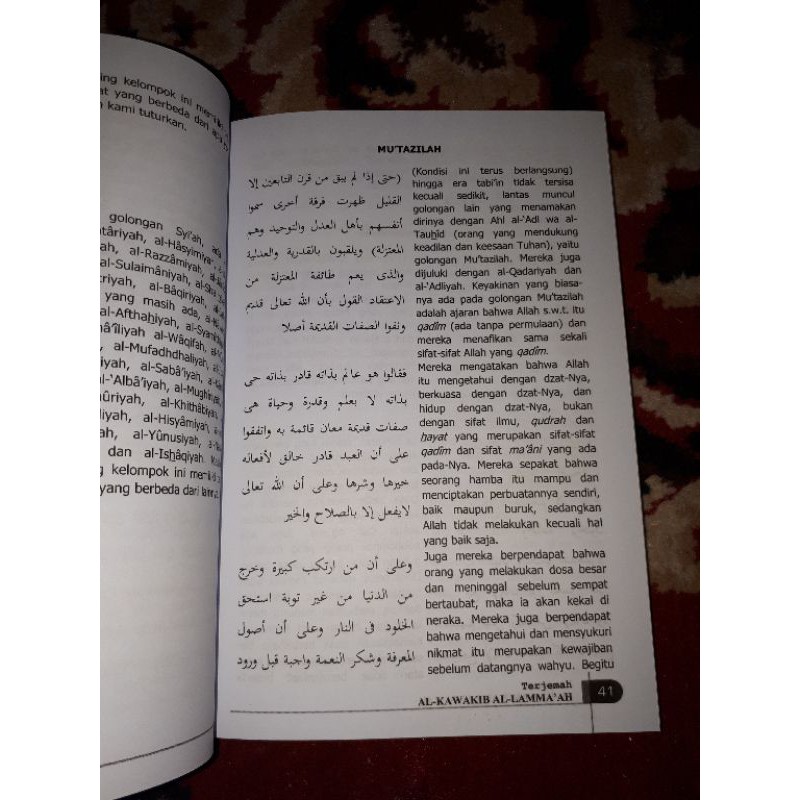 kelompok ini
yang berbeda dari
kami tuturkan.
golongan Syi'ah, ada
al-Hâsyimiyah,
al-Razzâmiyah,
al-Sulaimâniyah,
al-Bâqiriyah,
yang masih ada,
al-Afthahiyah,
al-Wâqifah,
al-Mufadhdhaliyah,
al-Sabâ'iyah,
al-'Albâ'iyah,
al-Khithâbiyah,
al-Hisyâmiyah,
al-Yûnusiyah,
dan al-Ishâqiyah.
kelompok ini
yang berbeda dari
MU'TAZILAH
(حتى إذا لم يبق من قرن التابعين إلا
القليل ظهرت فرقة أخرى سموا
أنفسهم بأهل العدل والتوحيد وهم
المعتزلة) ويلقبون بالقدرية والعدلية
والذى يعم طائفة المعتزلة من
الاعتقاد القول بأن الله تعالى قديم
ونفوا الصفات القديمة أصلا
فقالوا هو عالم بذاته قادر بذاته حى
بذاته لا بعلم وقدرة وحياة هى
صفات قديمة معان قائمة به واتفقوا
على أن العبد قادر خالق لأفعاله
خيرها وشرها وعلى أن الله تعالى
لايفعل إلا بالصلاح والخير
وعلى أن من ارتكب كبيرة وخرج
من الدنيا من غير توبة استحق
الخلود فى النار وعلى أن أصول
المعرفة وشكر النعمة واجبة قبل ورود
(Kondisi ini terus berlangsung)
hingga era tabi'in tidak tersisa
kecuali sedikit, lantas muncul
golongan lain yang menamakan
dirinya dengan Ahl al-'Adl wa al-
Tauhîd (orang yang mendukung
keadilan dan keesaan Tuhan), yaitu
golongan Mu'tazilah. Mereka juga
dijuluki dengan al-Qadariyah dan
al-'Adliyah. Keyakinan yang biasa-
nya ada pada golongan Mu'tazilah
adalah ajaran bahwa Allah s.w.t. itu
qadîm (ada tanpa permulaan) dan
mereka menafikan sama sekali
sifat-sifat Allah yang qadîm.
Mereka mengatakan bahwa Allah
itu mengetahui dengan dzat-Nya,
berkuasa dengan dzat-Nya, dan
hidup dengan dzat-Nya, bukan
dengan sifat ilmu, qudrah dan
hayat yang merupakan sifat-sifat
qadîm dan sifat ma'âni yang ada
pada-Nya. Mereka sepakat bahwa
seorang hamba itu mampu dan
menciptakan perbuatannya sendiri,
baik maupun buruk, sedangkan
Allah tidak melakukan kecuali hal
yang baik saja.
Juga mereka berpendapat bahwa
orang yang melakukan dosa besar
dan meninggal sebelum sempat
bertaubat, maka ia akan kekal di
neraka. Mereka juga berpendapat
bahwa mengetahui dan mensyukuri
nikmat itu merupakan kewajiban
sebelum datangnya wahyu. Begitu
Terjemah
AL-KAWAKIB AL-LAMMA'AH
41